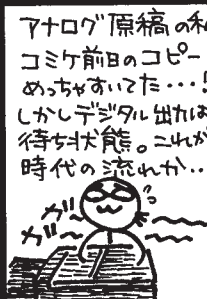 アナログ原稿の私
コミケ前日のコピー
めっちゃすいてた・・・!
しかしデジタル出力は
待ち状態。これが
時代の流れか・・
ガー
ガー